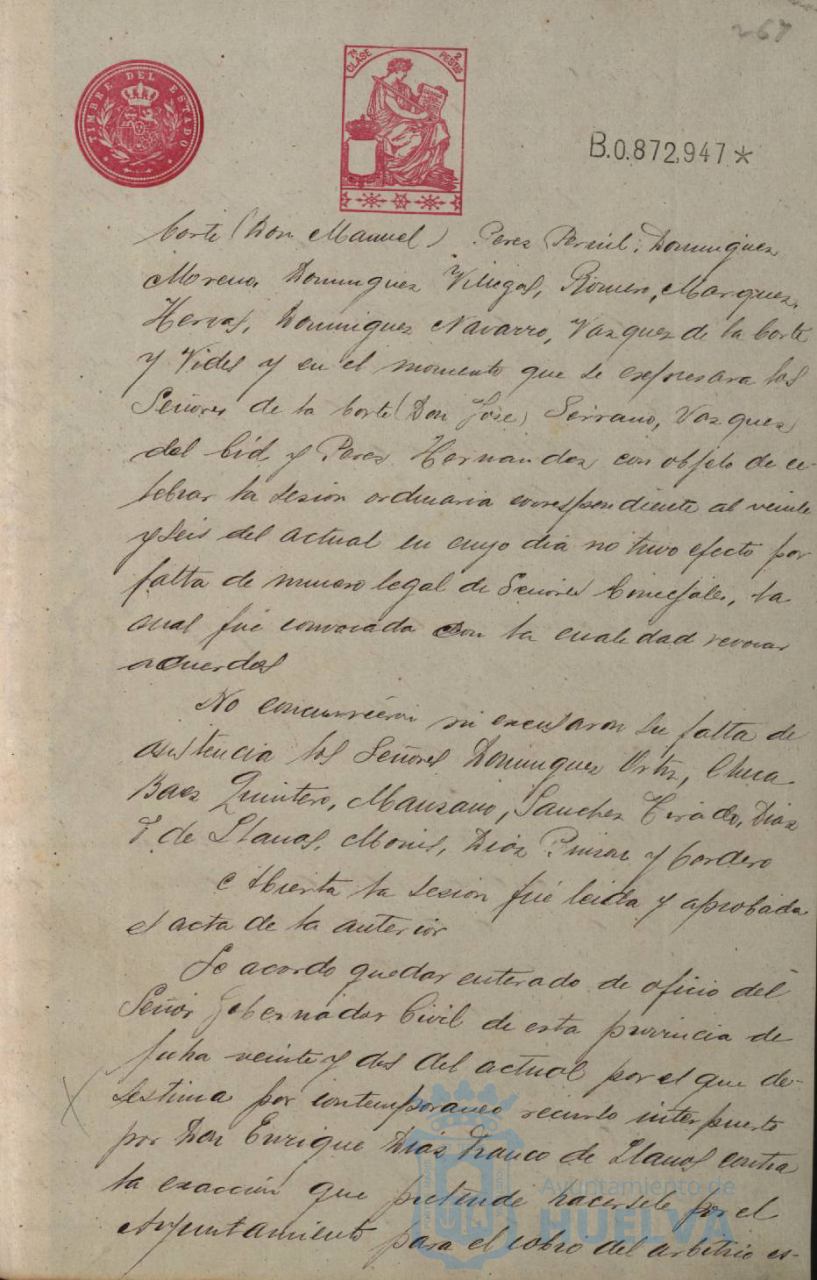 267
TIMBRE DEL ESTADO
7ª CLASE 2 PESETAS
B.0.872,947*
Corte (Don Manuel) Perez Persil, Dominguez
Moreno, Dominguez Villegas, Romero, Marquez,
Hervas, Dominguez Navarro, Vazquez de la Corte
y Vides y en el momento que se expresara los
Señores de la Corte (Don Jose) Serrano, Vazquez
del Cid y Perez Hernandez con objeto de ce-
lebrar la sesion ordinaria correspondiente al veinte
y seis del actual en cuyo dia no tuvo efecto por
falta de numero legal de Señores Concejales, la
cual fué convocada con la cualidad
acuerdos
No concurrieron ni excusaron su falta de
asistencia los Señores Dominguez Ortiz,
Baez Quintero, Manzano, Sanchez Tirado, Diaz
F. de Llanos, Monis, Diaz Pinzon y Cordero
Abierta la sesion fué leida y aprobada
el acta de la anterior
Se acordo quedar enterado de oficio del
Señor Gobernador Civil de esta provincia de
fecha veinte y dos del actual por el que de-
sestima por contemporaneo recurso interpuesto
por Don Enrique Diaz Franco de Llanos contra
la exacción que pretende hacersele por el
Ayuntamiento para el cobro del arbitrio es-
Ayuntamiento de
HUELVA